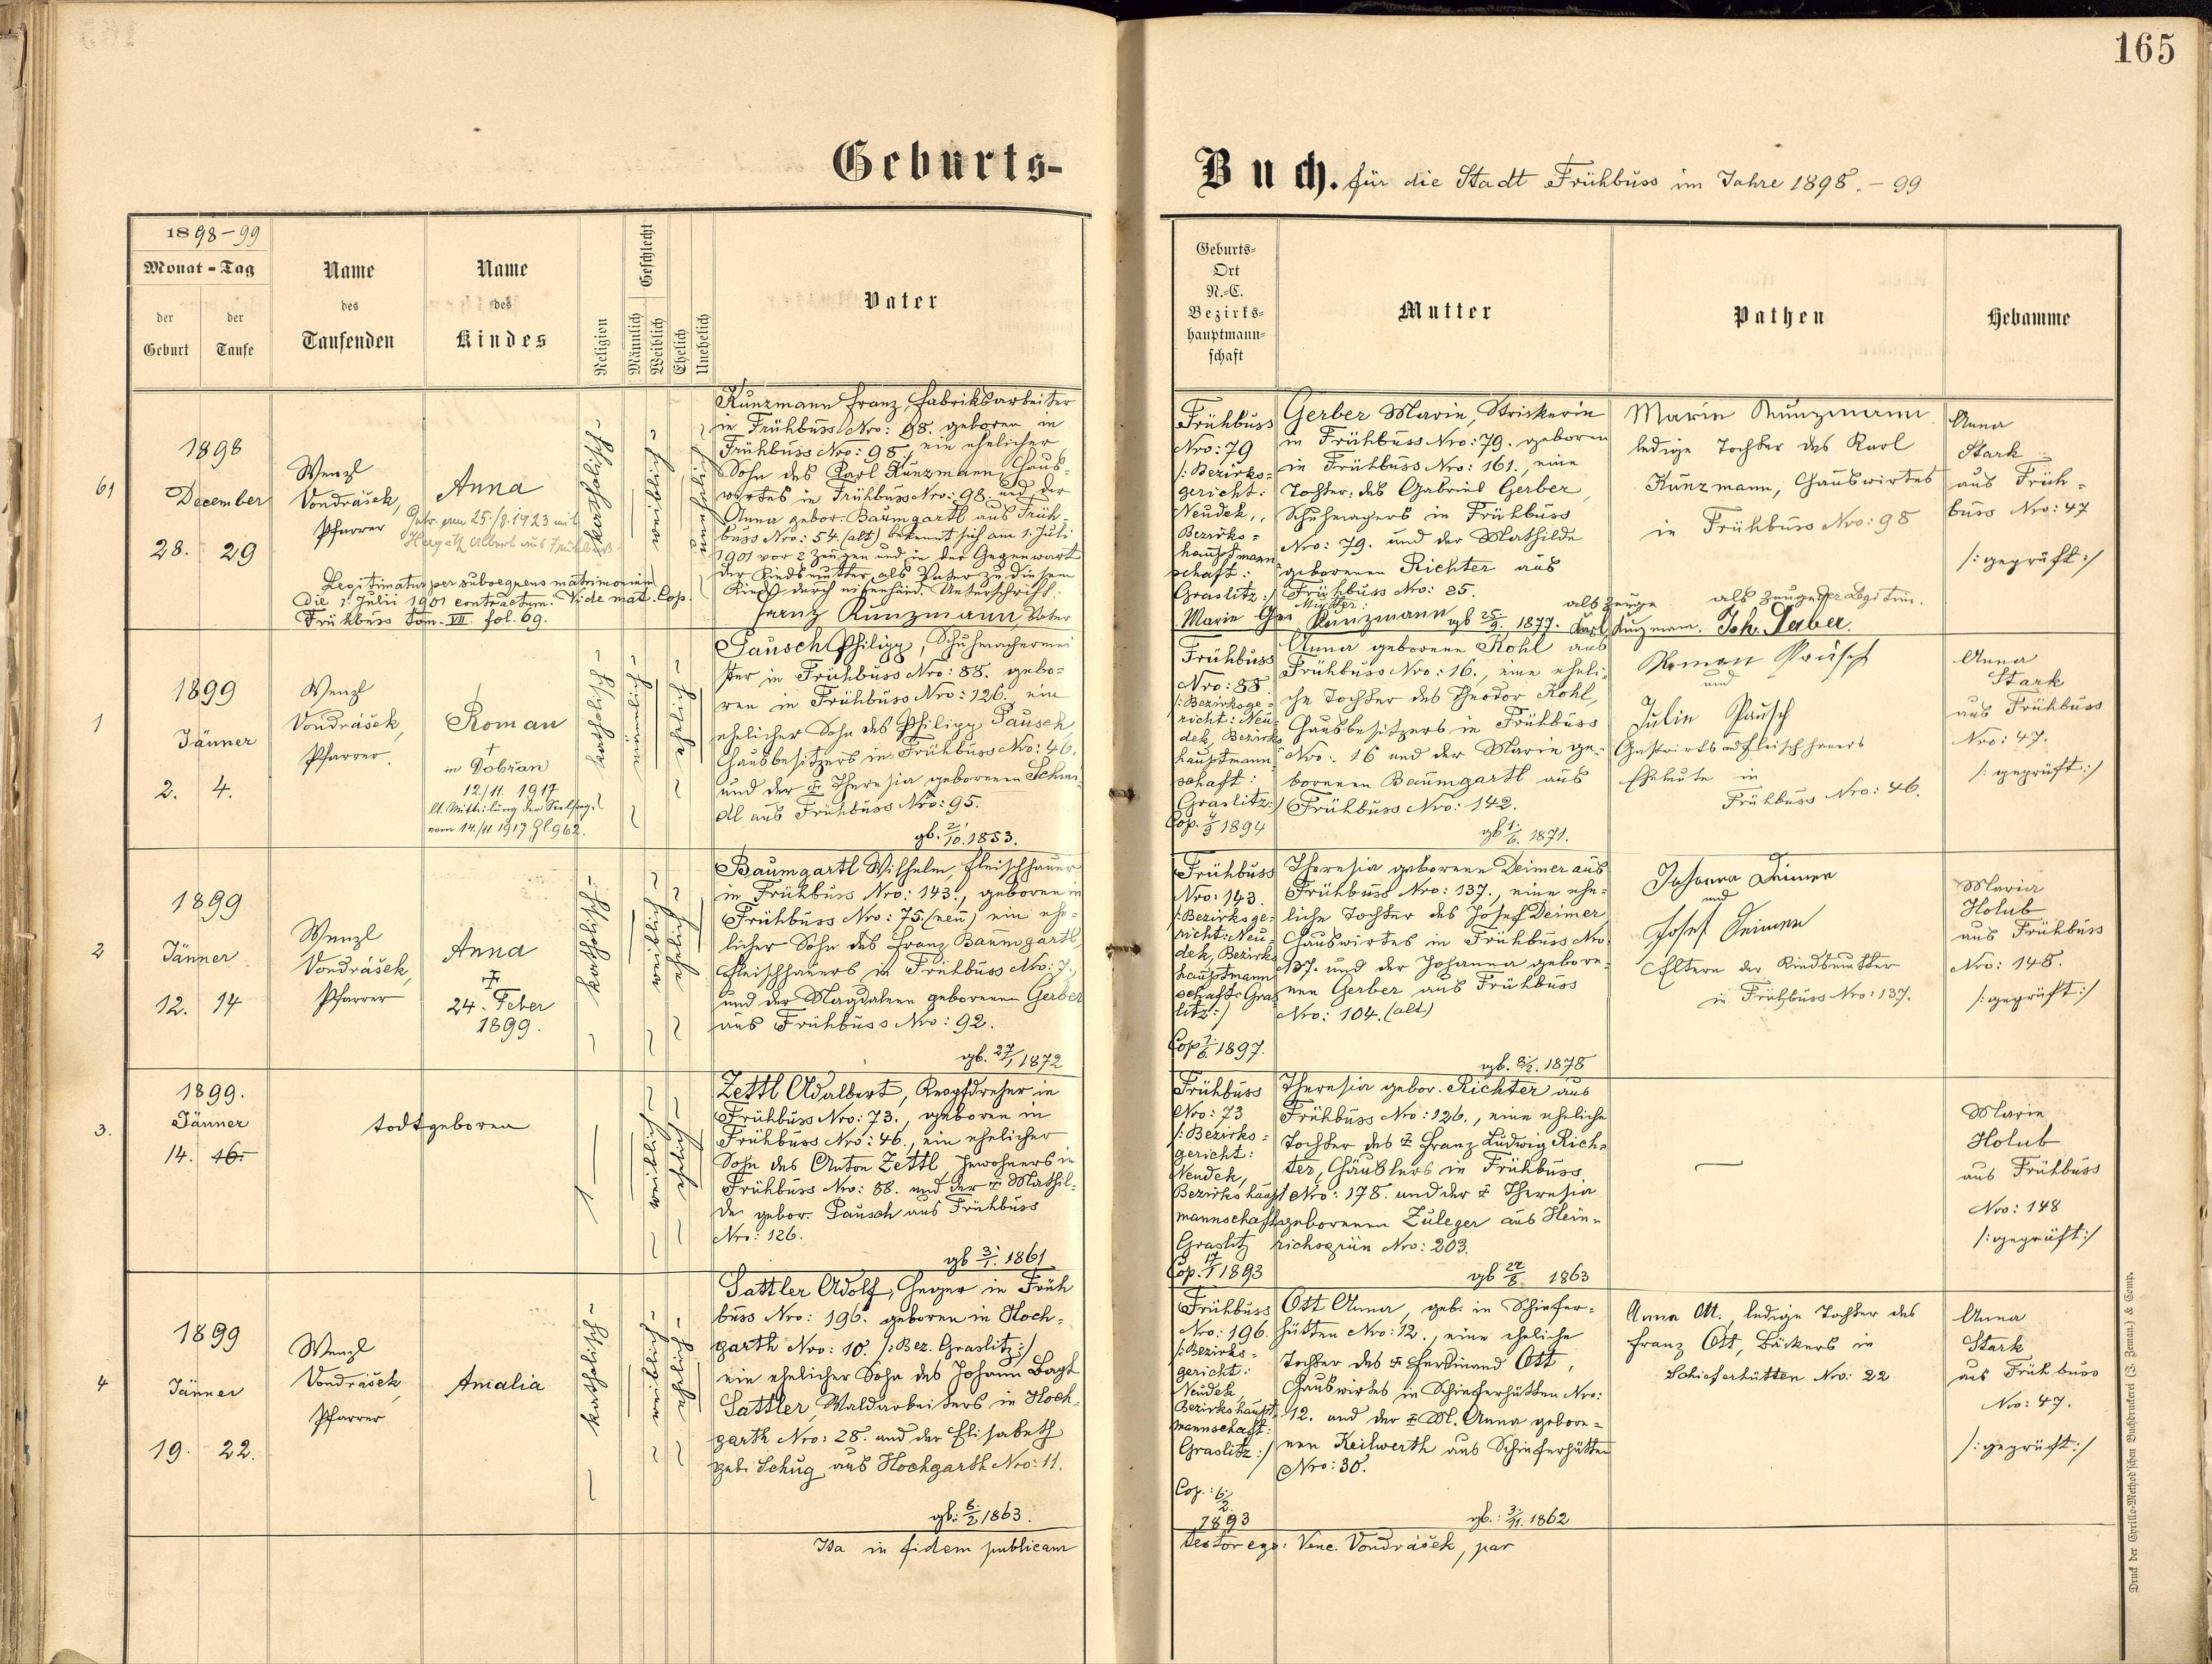 165
Geburts-
Buch. für die Stadt Frühbuss im Jahre 1898.-99
1898-99
Monat-Tag
der Geburt
der Taufe
Name des Taufenden
Name des Kindes
Religion
Geschlecht
Männlich
Weiblich
Ehelich
Unehelich
Vater
Geburts-
Ort
N.-C.
Bezirks-
hauptmann-
schaft
Mutter
Pathen
Hebamme
61
1898
December
28. 29
Wenzl
Vondrášek,
Pfarrer
Anna
Hergeth Albert aus Frühbuss
Legitimatur per subsequens matrimonium
die 1. Julii 1901 contractum. Vide mat. Cop.
Frühbuss tom. VII. fol. 69.
- katholisch -
- weiblich -
Kunzmann Franz, Fabriksarbeiter
in Frühbuss Nro: 98. geboren in
Frühbuss Nro: 98., ein ehelicher
Sohn des Karl Kunzmann, Haus-
wirtes in Frühbuss Nro: 98. und der
Anna gebor. Baumgartl aus Früh-
buss Nro: 54. (alt) bekennt sich am 1. Juli
1901 vor 2 Zeugen und in der Gegenwart
der Kindsmutter als Vater zu diesem
Kinde durch eigenhänd. Unterschrift.
Franz Kunzmann Vater
Frühbuss
Nro: 79
/: Bezirks-
gericht:
Neudek,
Bezirks-
hauptmann
schaft:
Graslitz:/
Gerber Marie, Strickerin
in Frühbuss Nro: 79. geboren
in Frühbuss Nro: 161., eine
Tochter des Gabriel Gerber,
Schuhmachers in Frühbuss
Nro: 79. und der Mathilde
geborenen Richter aus
Frühbuss Nro: 25.
Mutter:
Marie Kunzmann gb 25/9. 1877.
Marie Kunzmann
ledige Tochter des Karl
Kunzmann, Hauswirtes
in Frühbuss Nro: 98
als Zeuge
Karl Kunzmann.
als Zeuge der Legitim.
Joh. Faber.
Anna
Stark
aus Früh-
buss Nro: 47
/: geprüft:/
1
1899
Jänner
2. 4.
Wenzl
Vondrášek,
Pfarrer.
Roman
†
in Dobřan
12./11. 1917
lt. Mitteilung der Seelsorge
vom 14./11 1917 Zl 962.
- katholisch -
- männlich -
- ehelich -
Pausch Philipp, Schuhmachermei
ster in Frühbuss Nro: 88. gebo-
ren in Frühbuss Nro: 126. ein
ehelicher Sohn des Philipp Pausch,
Hausbesitzers in Frühbuss Nro: 46,
und der † Theresia geborenen Schmi-
dl aus Frühbuss Nro: 95.
gb. 2/10. 1853.
Frühbuss
Nro: 88.
/: Bezirksge-
richt: Neu-
dek, Bezirks
hauptmann-
schaft:
Graslitz:/
Cop. 4/9 1894
Anna geborene Kohl aus
Frühbuss Nro: 16., eine eheli-
che Tochter des Theodor Kohl,
Hausbesitzers in Frühbuss
Nro: 16 und der Marie ge-
borenen Baumgartl aus
Frühbuss Nro: 142.
gb 1/6. 1871.
Roman Pausch
und
Julie Pausch
Gastwirts und Fleischhauers
Eheleute in
Frühbuss Nro: 46.
Anna
Stark
aus Frühbuss
Nro: 47.
/: geprüft:/
2
1899
Jänner
12. 14
Wenzl
Vondrášek,
Pfarrer
Anna
†
24. Feber
1899.
- katholisch -
- weiblich -
- ehelich -
Baumgartl Wilhelm, Fleischhauer
in Frühbuss Nro: 143., geboren in
Frühbuss Nro: 75. (neu) ein ehe-
licher Sohn des Franz Baumgartl,
Fleischhauers in Frühbuss Nro: 7.,
und der Magdalena geborenen Gerber
aus Frühbuss Nro: 92.
gb. 27/1 1872
Frühbuss
Nro: 143.
/: Bezirksge-
richt: Neu-
dek, Bezirks
hauptmann
schaft: Gras
litz:/
Cop 1/6 1897.
Theresia geborene Deimer aus
Frühbuss Nro: 137., eine ehe-
liche Tochter des Josef Deimer
Hauswirtes in Frühbuss Nro
137. und der Johanna gebore-
nen Gerber aus Frühbuss
Nro: 104. (alt)
gb. 8/2. 1878
Johanna Deimer
und
Josef Deimer
Eltern der Kindsmutter
in Frühbuss Nro: 137.
Maria
Holub
aus Frühbuss
Nro: 148.
/: geprüft:/
3.
1899.
Jänner
14. 16.
todtgeboren
- weiblich -
- ehelich -
Zettl Adalbert, Knopfdreher in
Frühbuss Nro: 73., geboren in
Frühbuss Nro: 46., ein ehelicher
Sohn des Anton Zettl, Inwohners in
Frühbuss Nro: 88. und der † Mathil-
de gebor. Pausch aus Frühbuss
Nro: 126.
gb 3/1. 1861
Frühbuss
Nro: 73
/: Bezirks-
gericht:
Neudek,
Bezirkshaupt
mannschaft
Graslitz
Cop. 17/1 1893
Theresia gebor. Richter aus
Frühbuss Nro: 126., eine eheliche
Tochter des † Franz Ludwig Rich-
ter, Häuslers in Frühbuss
Nro: 178. und der † Theresia
geborenen Zuleger aus Hein-
richsgrün Nro: 203.
gb 22/8 1863
Marie
Holub
aus Frühbuss
Nro: 148
/: geprüft:/
4
1899
Jänner
19. 22.
Wenzl
Vondrášek
Pfarrer
Amalia
- katholisch -
- weiblich -
- ehelich -
Sattler Adolf, Heger in Früh
buss Nro: 196. geboren in Hoch-
garth Nro: 10. /: Bez. Graslitz:/
ein ehelicher Sohn des Johann Bapt
Sattler, Waldarbeiters in Hoch-
garth Nro: 28. und der Elisabeth
geb. Schug aus Hochgarth Nro: 11.
gb: 8/2 1863.
Frühbuss
Nro: 196.
/: Bezirks-
gericht:
Neudek
Bezirkshaupt-
mannschaft:
Graslitz:/
Cop.: 6/2.
1893
Ott Anna, geb. in Schiefer-
hütten Nro: 12., eine eheliche
Tochter des † Ferdinand Ott,
Hauswirtes in Schieferhütten Nro:
12. und der † M. Anna gebore-
nen Keilwerth aus Schieferhütten
Nro: 30.
gb.: 3/11. 1862
Anna Ott, ledige Tochter des
Franz Ott, Bäckers in
Schieferhütten Nro: 22
Anna
Stark
aus Frühbuss
Nro: 47.
/: geprüft:/
Ita in fidem publicam
testor ego: Venc. Vondrášek, par
Druck der Cyrillo-Method'schen Buchdruckerei (J. Zeman) & Comp.